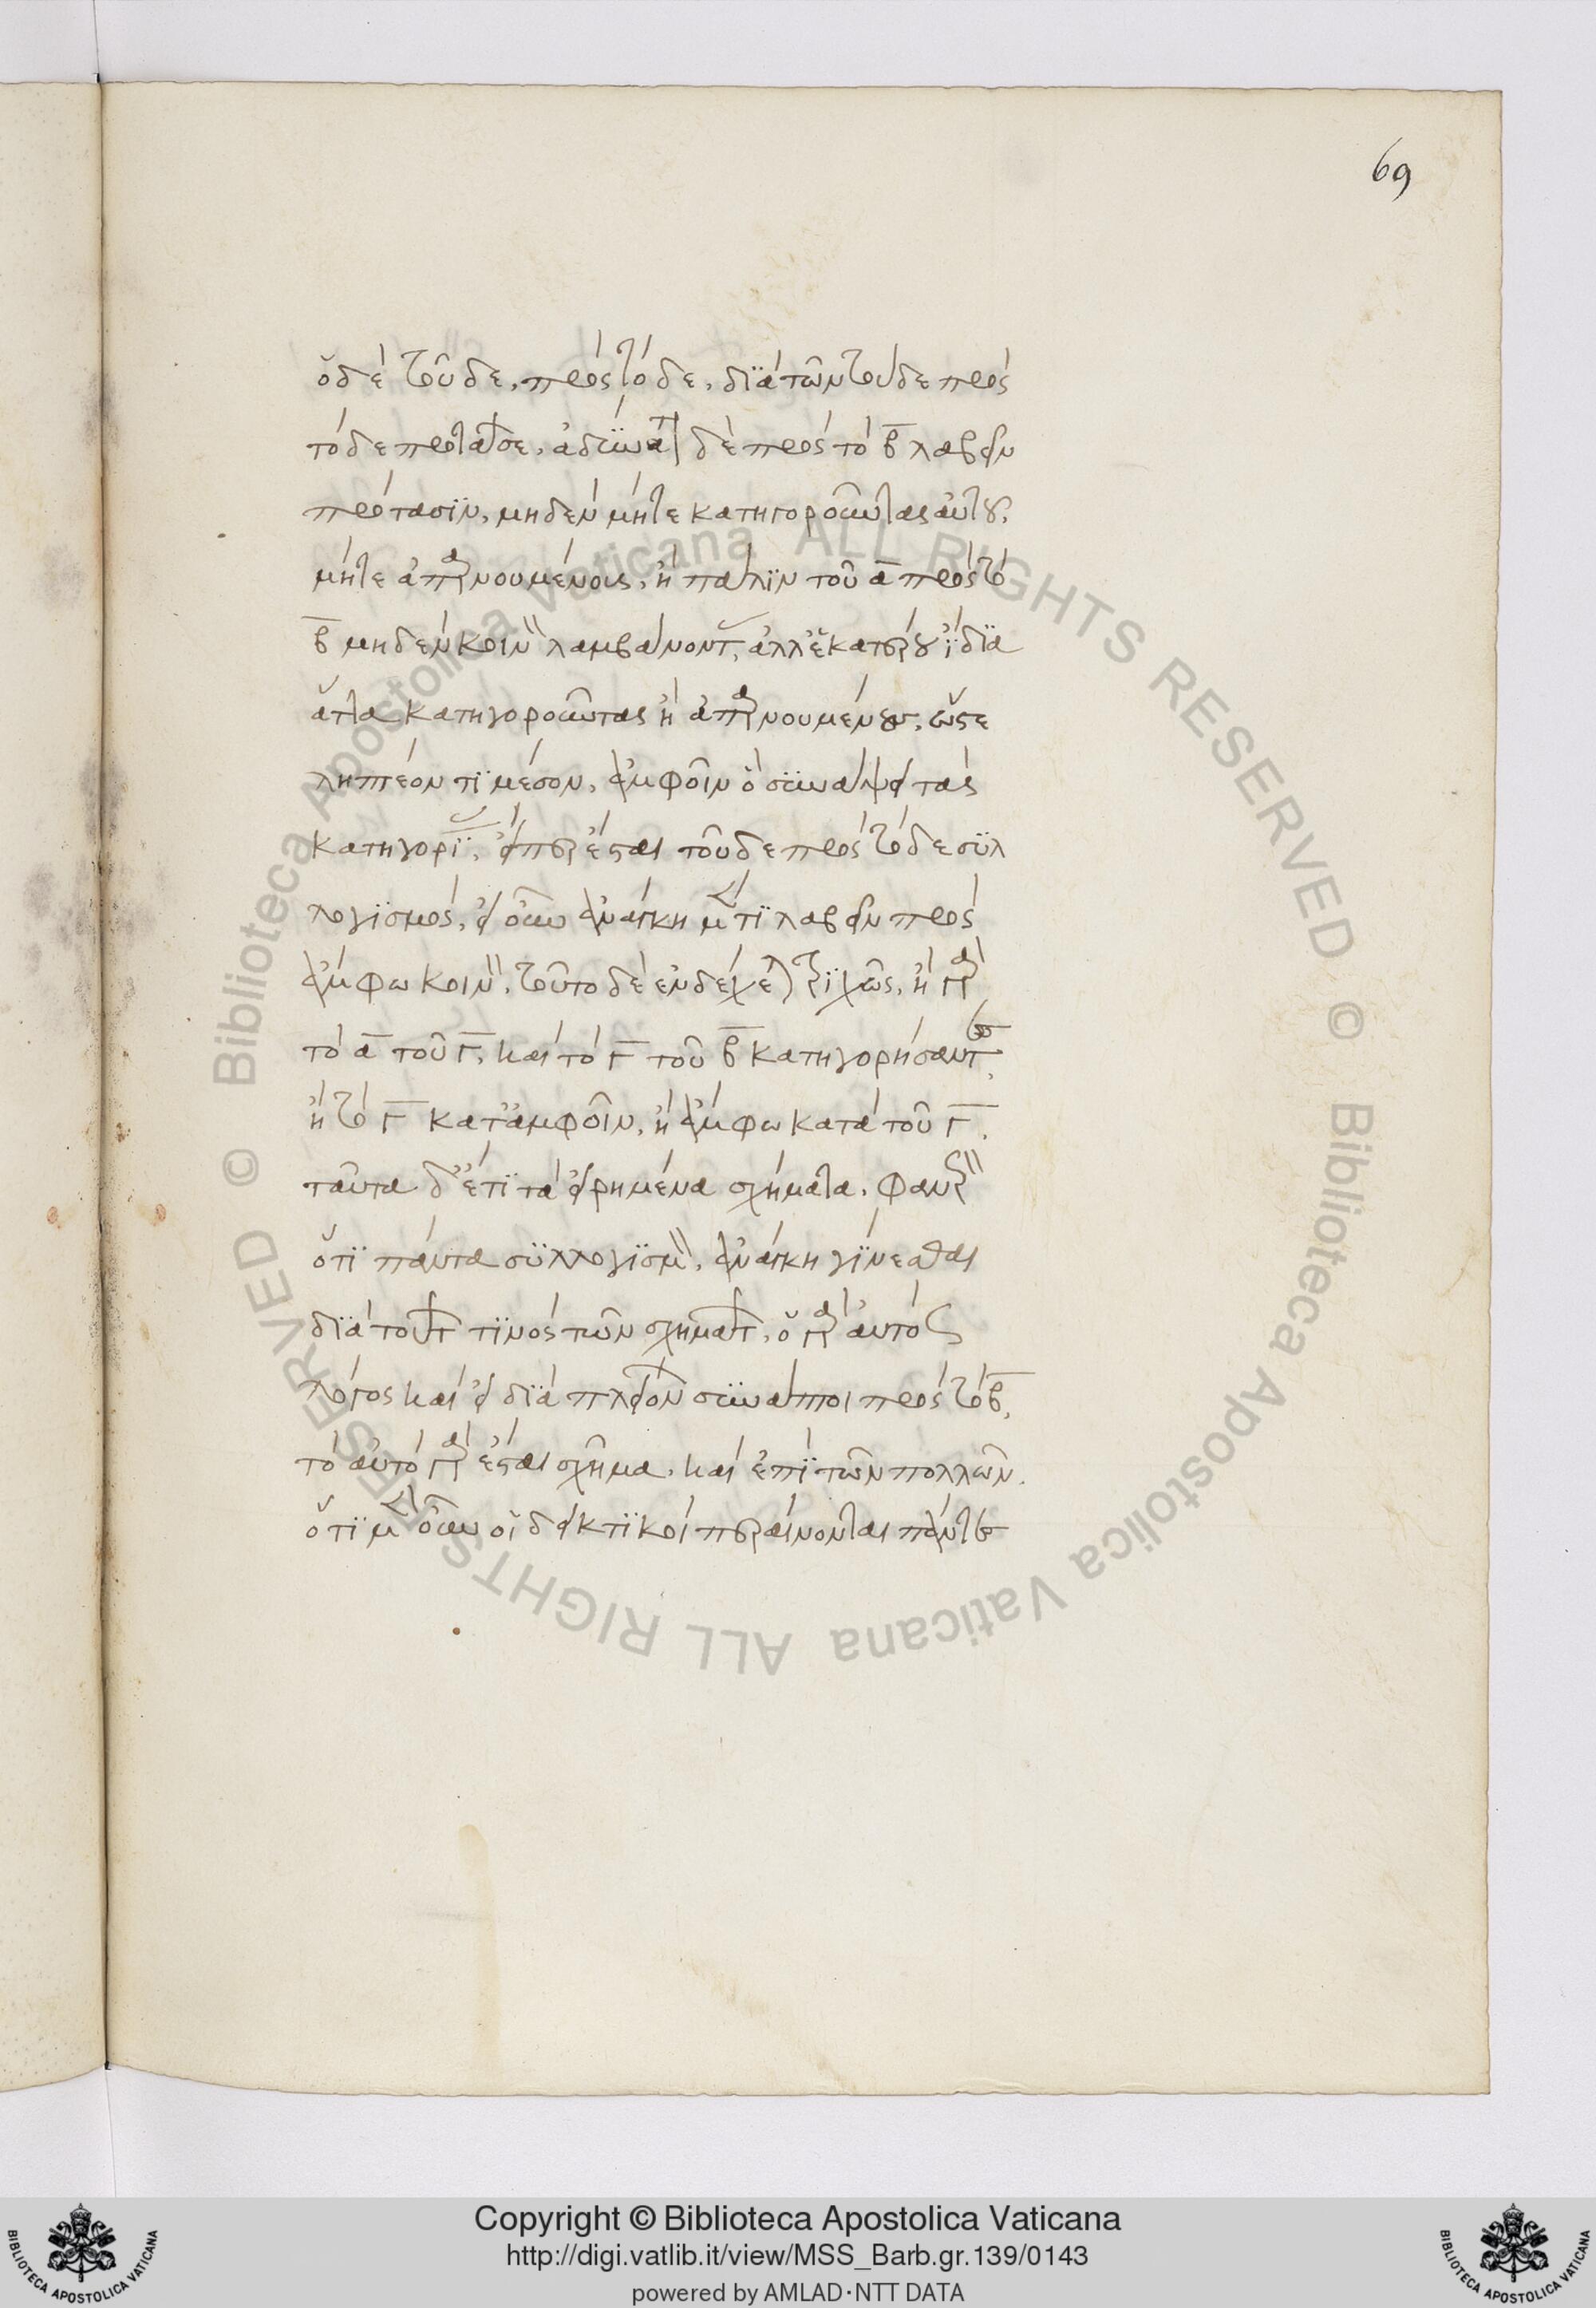 69
ὁ δὲ τοῦδε, πρὸς τόδε, διὰ τῶν τοῦδε πρὸς
τόδε προτάσε, ἀδύνατ δὲ πρὸς τὸ β λαβεῖν
πρότασιν, μηδὲν μήτε κατηγοροῦντας αὐτοῦ,
μήτε ἀπαρνουμένους, ἢ πάλιν τοῦ α πρὸς τὸ
β μηδὲν κοινὸν λαμβάνοντ, ἀλλ' ἑκατέρου ἴδια
ἄττα κατηγοροῦντας ἢ ἀπαρνουμένους, ὥστε
ληπτέον τι μέσον, ἀμφοῖν ὃ συνάψει τὰς
κατηγορί, εἴπερ ἔσται τοῦδε πρὸς τόδε συλ
λογισμός, εἰ οὖν ἀνάγκη μέν τι λαβεῖν πρὸς
ἄμφω κοινόν, τοῦτο δὲ ἐνδέχεται τριχῶς, ἢ γὰρ
τὸ α τοῦ γ, καὶ τὸ γ τοῦ β κατηγορήσαντας,
ἢ τὸ γ κατ' ἀμφοῖν, ἢ ἄμφω κατὰ τοῦ γ,
ταῦτα δ' ἔτι τὰ εἰρημένα σχήματα, φανερὸν
ὅτι πάντα συλλογισμὸν, ἀνάγκη γίνεσθαι
διὰ τούτων τινὸς τῶν σχημάτων, ὁ γὰρ αὐτὸς
λόγος καὶ εἰ διὰ πλειόνων συνάπτοι πρὸς τὸ β,
τὸ αὐτὸ γὰρ ἔσται σχῆμα, καὶ ἐπὶ τῶν πολλῶν.
ὅτι μὲν οὖν οἱ δεικτικοὶ περαίνονται πάντες
Copyright © Biblioteca Apostolica Vaticana
http://digi.vatlib.it/view/MSS_Barb.gr.139/0143
powered by AMLAD·NTT DATA
BIBLIOTECA APOSTOLICA VATICANA
BIBLIOTECA APOSTOLICA VATICANA
© Biblioteca Apostolica Vaticana ALL RIGHTS RESERVED © Biblioteca Apostolica Vaticana ALL RIGHTS RESERVED